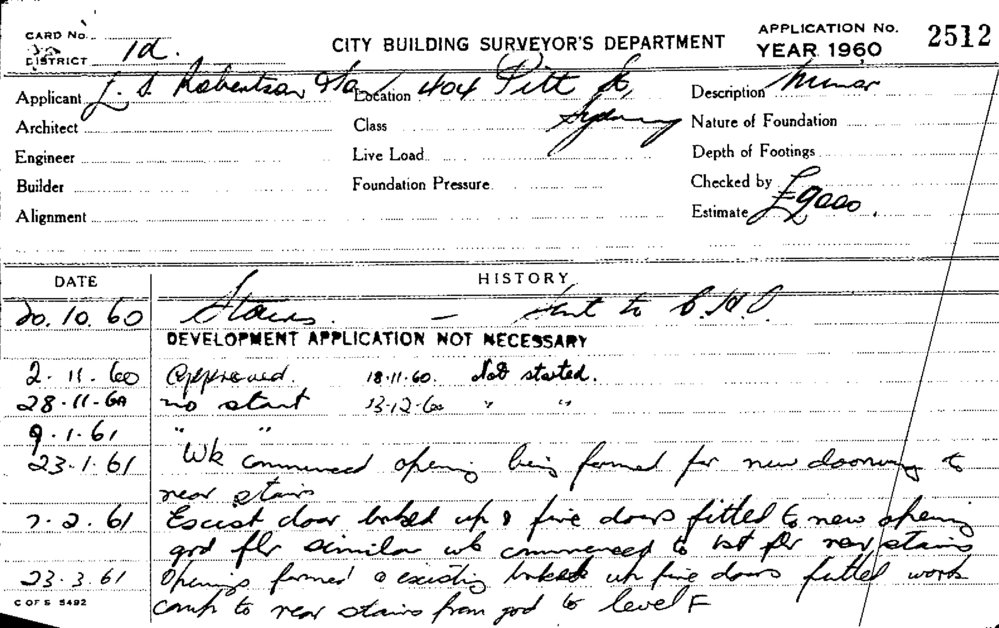 CARD No.
DISTRICT 1d.
CITY BUILDING SURVEYOR'S DEPARTMENT
APPLICATION No. 2512
YEAR 1960
Applicant J. S. Robertson
Location 404 Pitt St, Sydney
Description Minor
Architect
Class
Nature of Foundation
Engineer
Live Load
Depth of Footings
Builder
Foundation Pressure
Checked by
Alignment
Estimate £9000.
DATE
HISTORY
20.10.60 Stairs. - Sent to C.H.O.
DEVELOPMENT APPLICATION NOT NECESSARY
2.11.60 Approved. 18.11.60. Not started.
28.11.60 no start 13.12.60 " "
9.1.61 " "
23.1.61 Wk commenced opening being formed for new doorway to
rear stairs
7.2.61 Exist door bricked up & fire doors fitted to new opening
grd flr similar wk commenced to 1st flr rear stairs
23.3.61 Openings formed & existing bricked up fire doors fitted work
comp to rear stairs from grd to level F
C OF S 5492